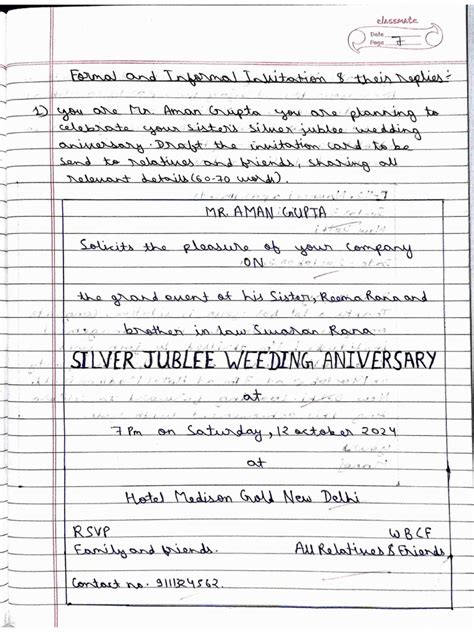 classmate
Date
Page 7
Formal and Informal Invitation & their Replies:-
1) you are Mr. Aman Gupta you are planning to
celebrate your sister's silver jublee wedding
aniversary. Draft the invitation card to be
send to relatives and friends, sharing all
relevant details (60-70 words).
MR. AMAN GUPTA
Solicits the pleasure of your company
ON
the grand event of his Sister, Reema Rana and
brother in law Swaran Rana
SILVER JUBLEE WEEDING ANIVERSARY
at
7 Pm on Saturday, 12 october 2024
at
Hotel Medison Gold New Delhi
RSVP
WBCF
Family and friends.
All Relatives & Friends
Contact no. 911124562.